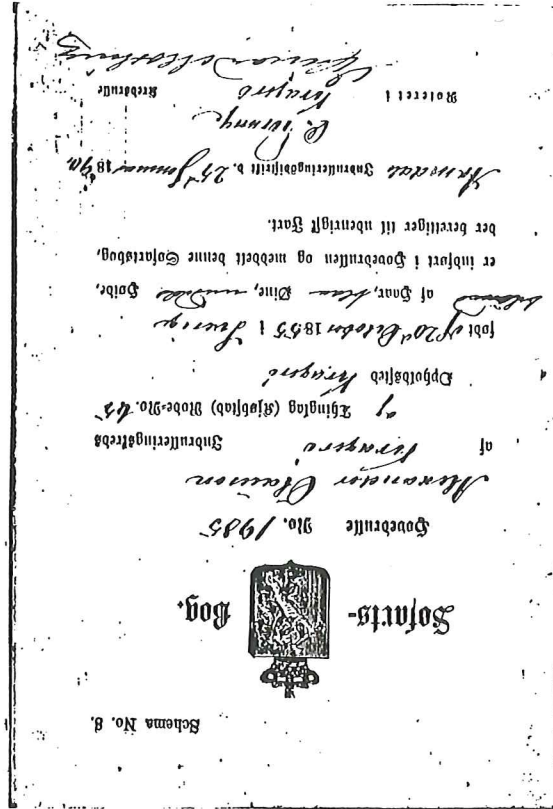 Schema No. 8.
Søfarts-Bog.
Hovedrulle No. 1985
Alexander Clausson
af Kragerø Indrulleringskreds
Thinglag (Kjøbstad) Rode-No. 45
Opholdssted Kragerø
født d 20 October 1855 i Sverige
af Haar, blaa Øine, middels Høide,
er indført i Hovedrullen og meddelt denne Søfartsbog,
der berettiger til udenrigsk Fart.
Arendal Indrulleringsdistrikt d. 25 Januar 1890
Noteret i Kragerø Krebsrulle